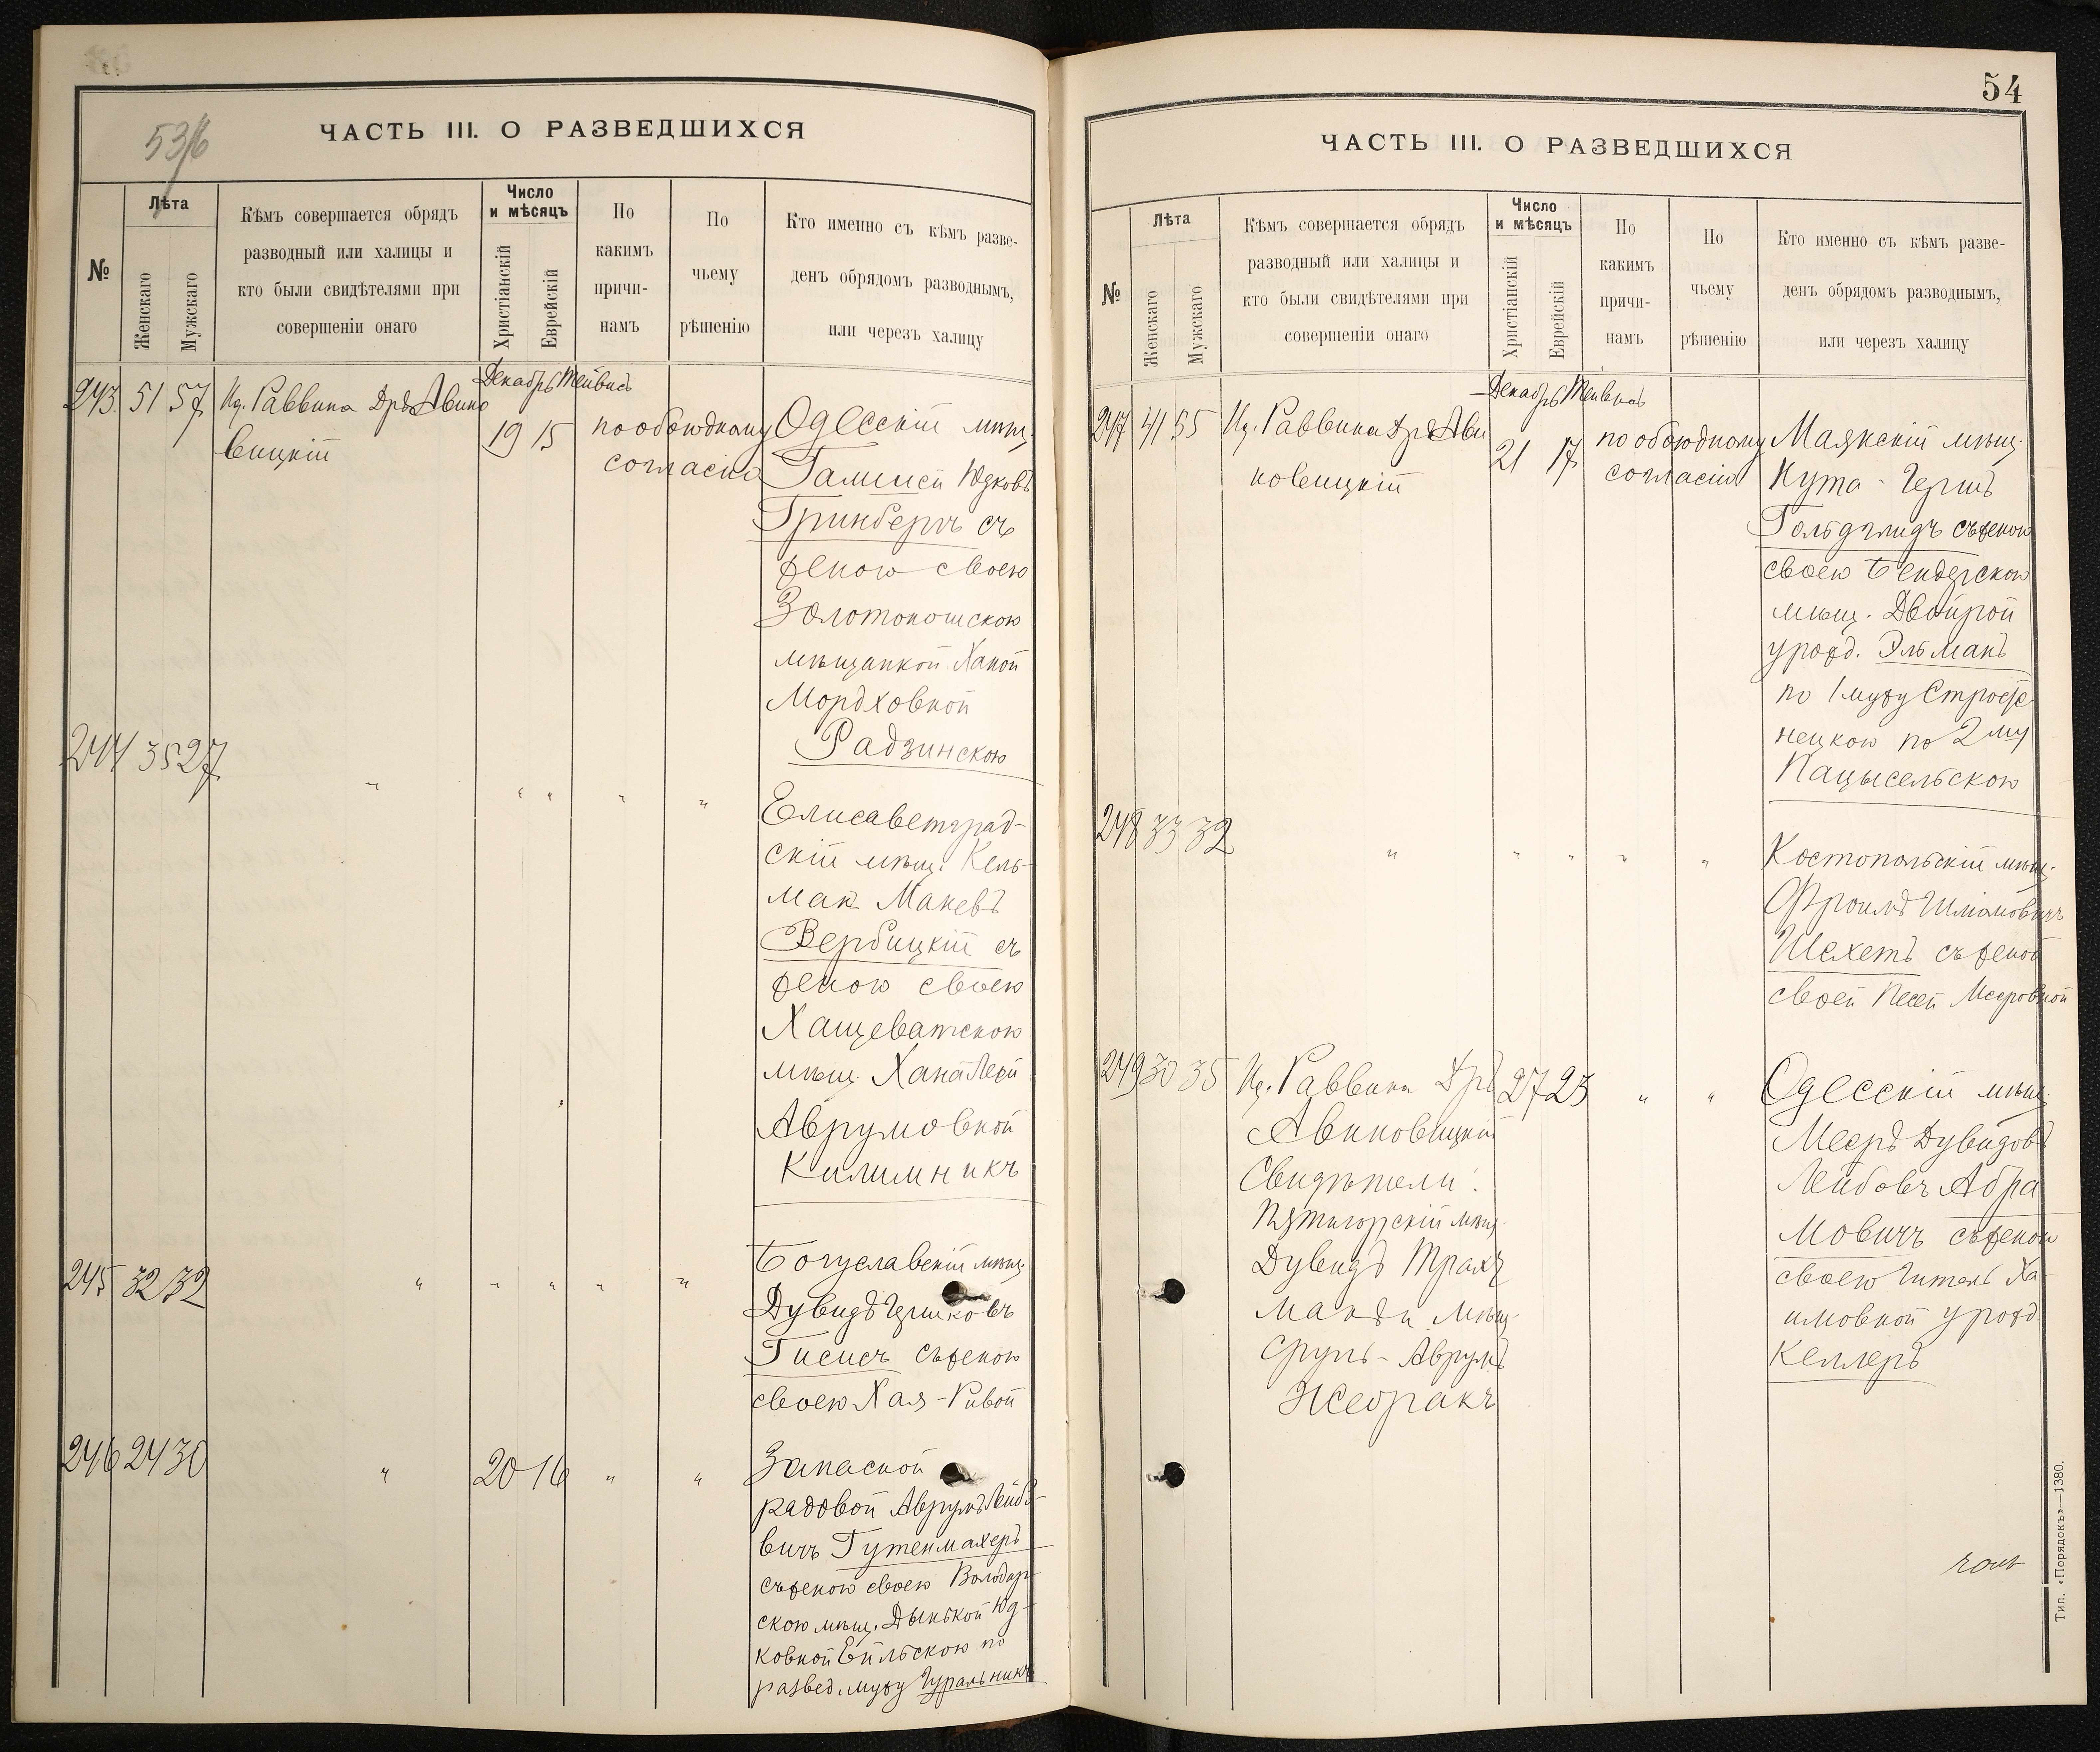 53/6
ЧАСТЬ III. О РАЗВЕДШИХСЯ
№
Лѣта
Женскаго
Мужскаго
Кѣмъ совершается обрядъ
разводный или халицы и
кто были свидѣтелями при
совершеніи онаго
Число
и мѣсяцъ
Христіанскій
Еврейскій
По
какимъ
причи-
намъ
По
чьему
рѣшенію
Кто именно съ кѣмъ разве-
денъ обрядомъ разводнымъ,
или черезъ халицу
243. 51 57
Раввина Дръ Авино
вицкій
Декабрь Тейвисъ
19 15
по обоюдному
согласію
Одесскій мѣщ.
Юдковъ
Гринбергъ съ
женою своею
Золотоношскою
мѣщанкой Ханой
Мордховной
Радзинскою
244 35 27
" " " " "
Елисаветград-
скій мѣщ. Кель-
ман Маневъ
Вербицкій съ
женою своею
Хащеватскою
мѣщ. Хана Леей
Аврумовной
Килимникъ
245 32 32
" " " " "
Богуславскій мѣщ.
Дувидъ Гершковъ
Гисисъ съ женою
своею Хая-Ривой
246 24 30
" 20 16 " "
Запасной
рядовой Аврумъ Лейбо-
вичъ Гутенмахеръ
съ женою своею Володар-
скою мѣщ. Дынькой Юд-
ковной по
развед. мужу Гуральникъ
54
ЧАСТЬ III. О РАЗВЕДШИХСЯ
№
Лѣта
Женскаго
Мужскаго
Кѣмъ совершается обрядъ
разводный или халицы и
кто были свидѣтелями при
совершеніи онаго
Число
и мѣсяцъ
Христіанскій
Еврейскій
По
какимъ
причи-
намъ
По
чьему
рѣшенію
Кто именно съ кѣмъ разве-
денъ обрядомъ разводнымъ,
или черезъ халицу
247 41 55
Раввина Дръ Ави
новицкій
Декабрь Тейвисъ
21 17
по обоюдному
согласію
Маякскій мѣщ.
Нута-Гершъ
Гольдшмидъ съ женою
своею Бендерскою
мѣщ. Двойрой
урожд. Эльманъ
по 1 мужу Строже
нецкою по 2 му
Пацысельскою
248 33 32
" " " " "
Костопольскій мѣщ.
Фроимъ Шліомовичъ
Шехетъ съ женой
своей Песей Мееровной
249 30 35
Раввина Дръ
Авиновицкій
Свидѣтели:
Пятигорскій мѣщ.
Дувидъ Трахт
манъ и мѣщ.
Сруль-Аврумъ
Жебракъ
27 23
" "
Одесскій мѣщ.
Мееръ Дувидовъ
Лейбовъ Абра
мовичъ съ женою
своею Гитель Ха-
имовной урожд.
Келлеръ
Тип. «Порядокъ»—1380.